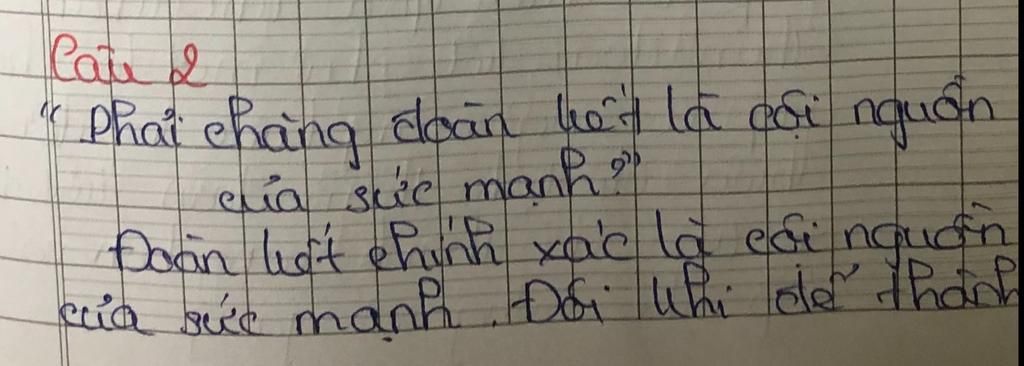 Câu 2
" Phải chăng đoàn kết là cội nguồn
của sức mạnh?"
Đoàn kết chính xác là cội nguồn
của sức mạnh. Đôi khi để thành